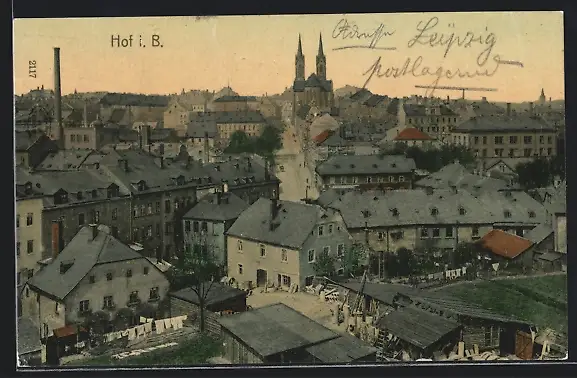 Hof i. B.
Adresse Leipzig
postlagernd
2117